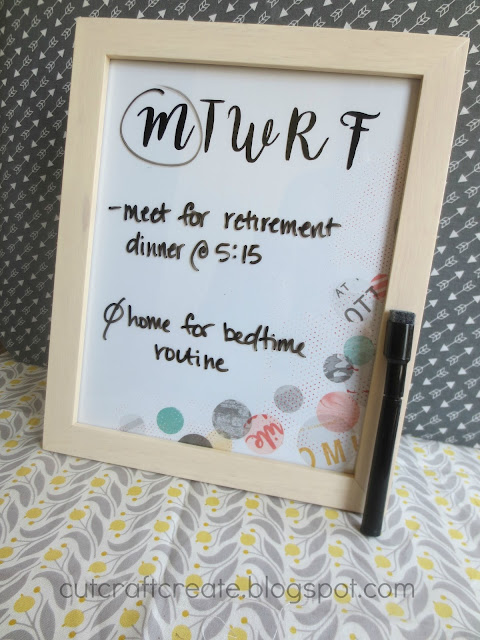 M T W R F
-meet for retirement
dinner @ 5:15
Ø home for bedtime
routine
cutcraftcreate.blogspot.com